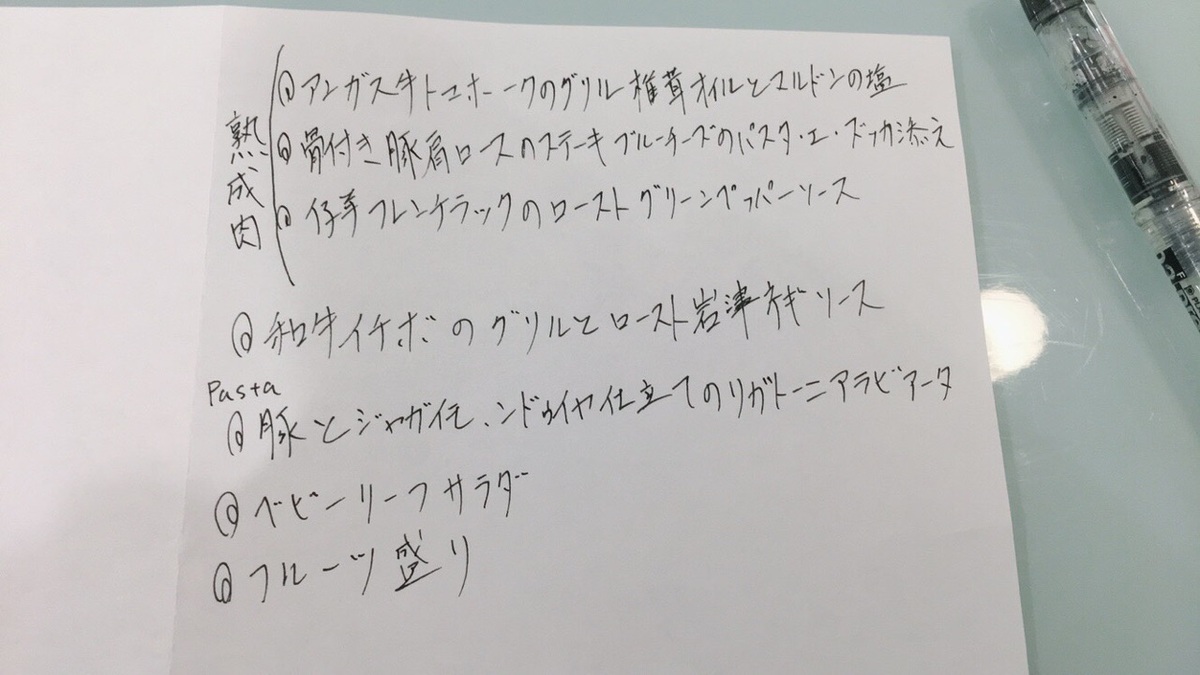 熟成肉
◎アンガス牛トマホークのグリル 椎茸オイルとマルドンの塩
◎骨付き豚肩ロースのステーキ ブルーチーズのパスタ・エ・ズッカ添え
◎仔羊フレンチラックのロースト グリーンペッパーソース
◎和牛イチボのグリルとロースト岩津ネギソース
Pasta
◎豚とジャガイモ、ンドゥイヤ仕立てのリガトーニアラビアータ
◎ベビーリーフサラダ
◎フルーツ盛り